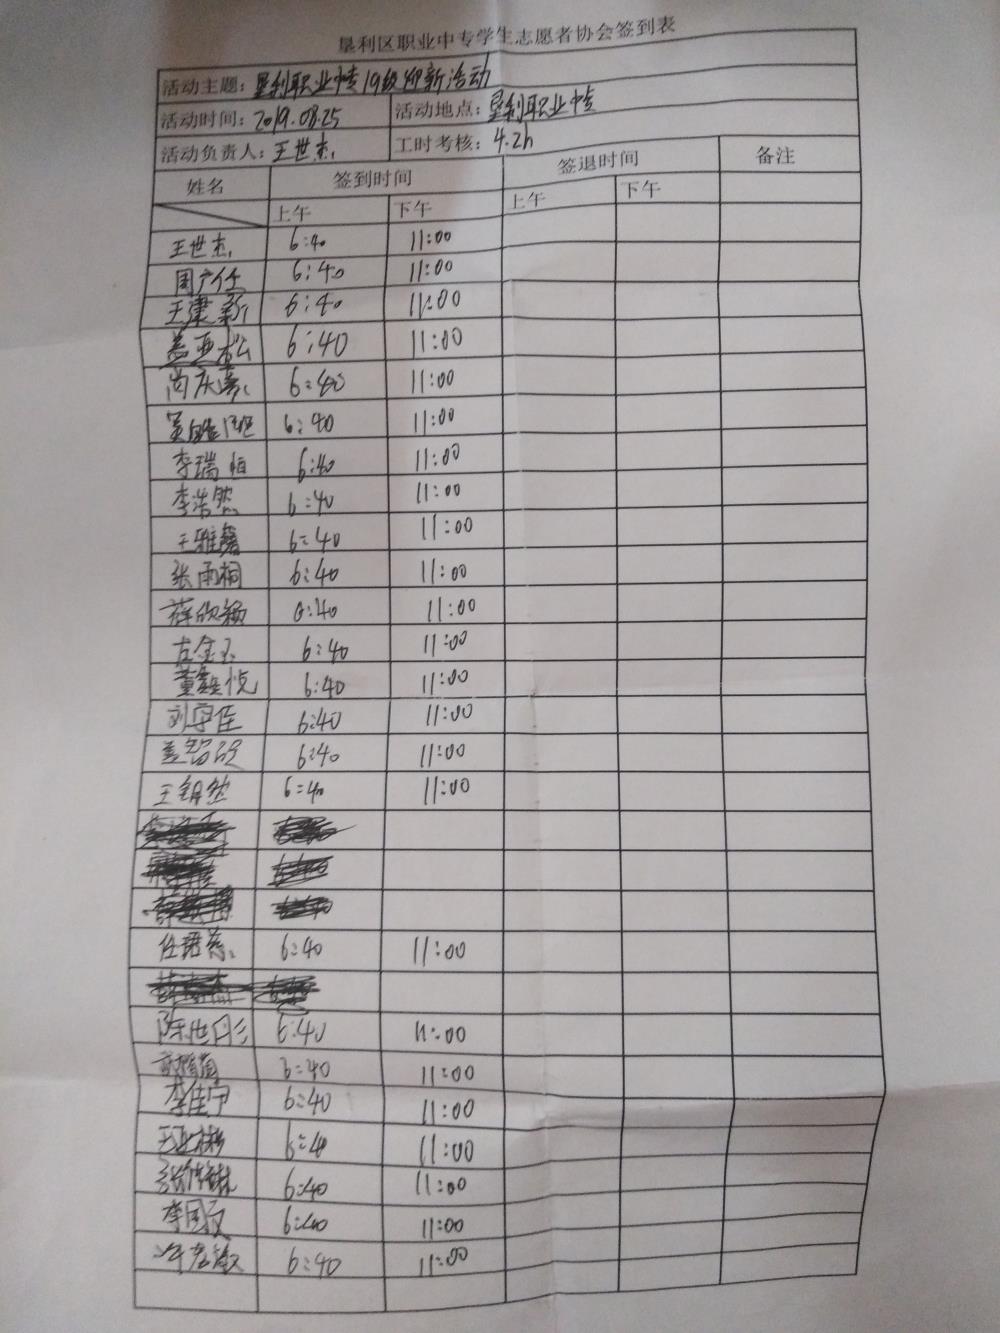 垦利区职业中专学生志愿者协会签到表
活动主题：垦利职业中专19级迎新活动
活动时间：2019.08.25 活动地点：垦利职业中专
活动负责人：王世杰 工时考核：4.2h
姓名 签到时间 签退时间 备注
上午 下午 上午 下午
王世杰 6:40 11:00
6:40 11:00
王康新 6:40 11:00
盖亚松 6:40 11:00
尚庆 6:40 11:00
6:40 11:00
李瑞恒 6:40 11:00
李浩然 6:40 11:00
王雅馨 6:40 11:00
张雨桐 6:40 11:00
薛欣颖 6:40 11:00
古金玉 6:40 11:00
董鑫悦 6:40 11:00
刘宇佳 6:40 11:00
盖智硕 6:40 11:00
王钥然 6:40 11:00
任珺 6:40 11:00
陈世 6:40 11:00
6:40 11:00
李佳宁 6:40 11:00
王亚彬 6:40 11:00
张 6:40 11:00
李国 6:40 11:00
6:40 11:00